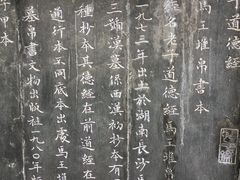 馬王堆帛書本
名老子道德經馬王堆帛
一九七三年出土於湖南長沙馬
三號漢墓係西漢初抄本有
種抄本其德經在前道經在
通行本不同底本出處馬王堆
墓帛書文物出版社一九八〇年出
子甲本